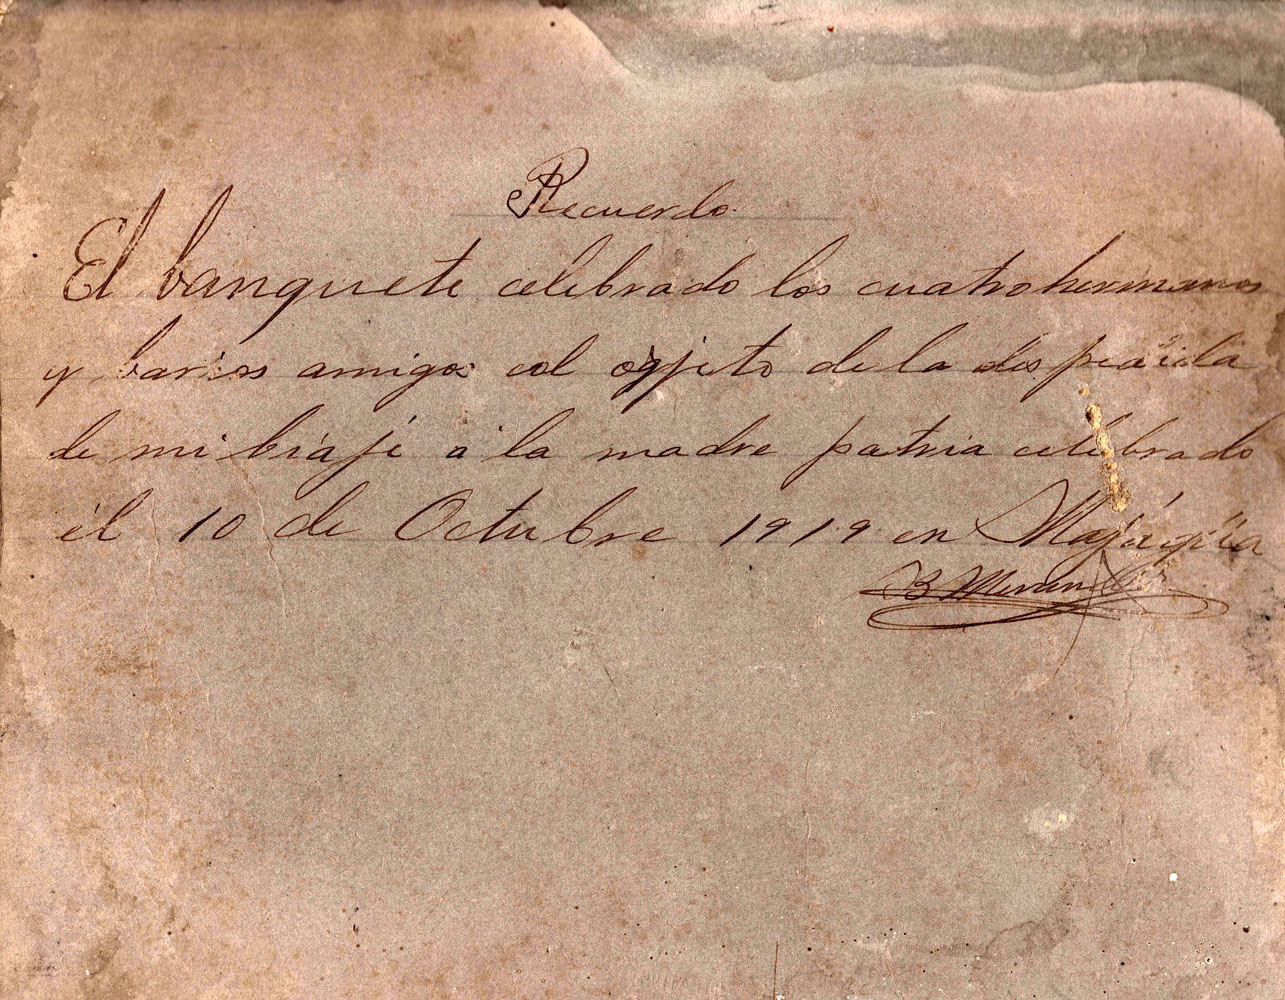 Recuerdo
El banquete celebrado los cuatro hermanos
y barios amigos col ogjeto de la despedida
de mi biaje á la madre patria celebrado
él 10 de Octubre 1919 en Majágüa
B